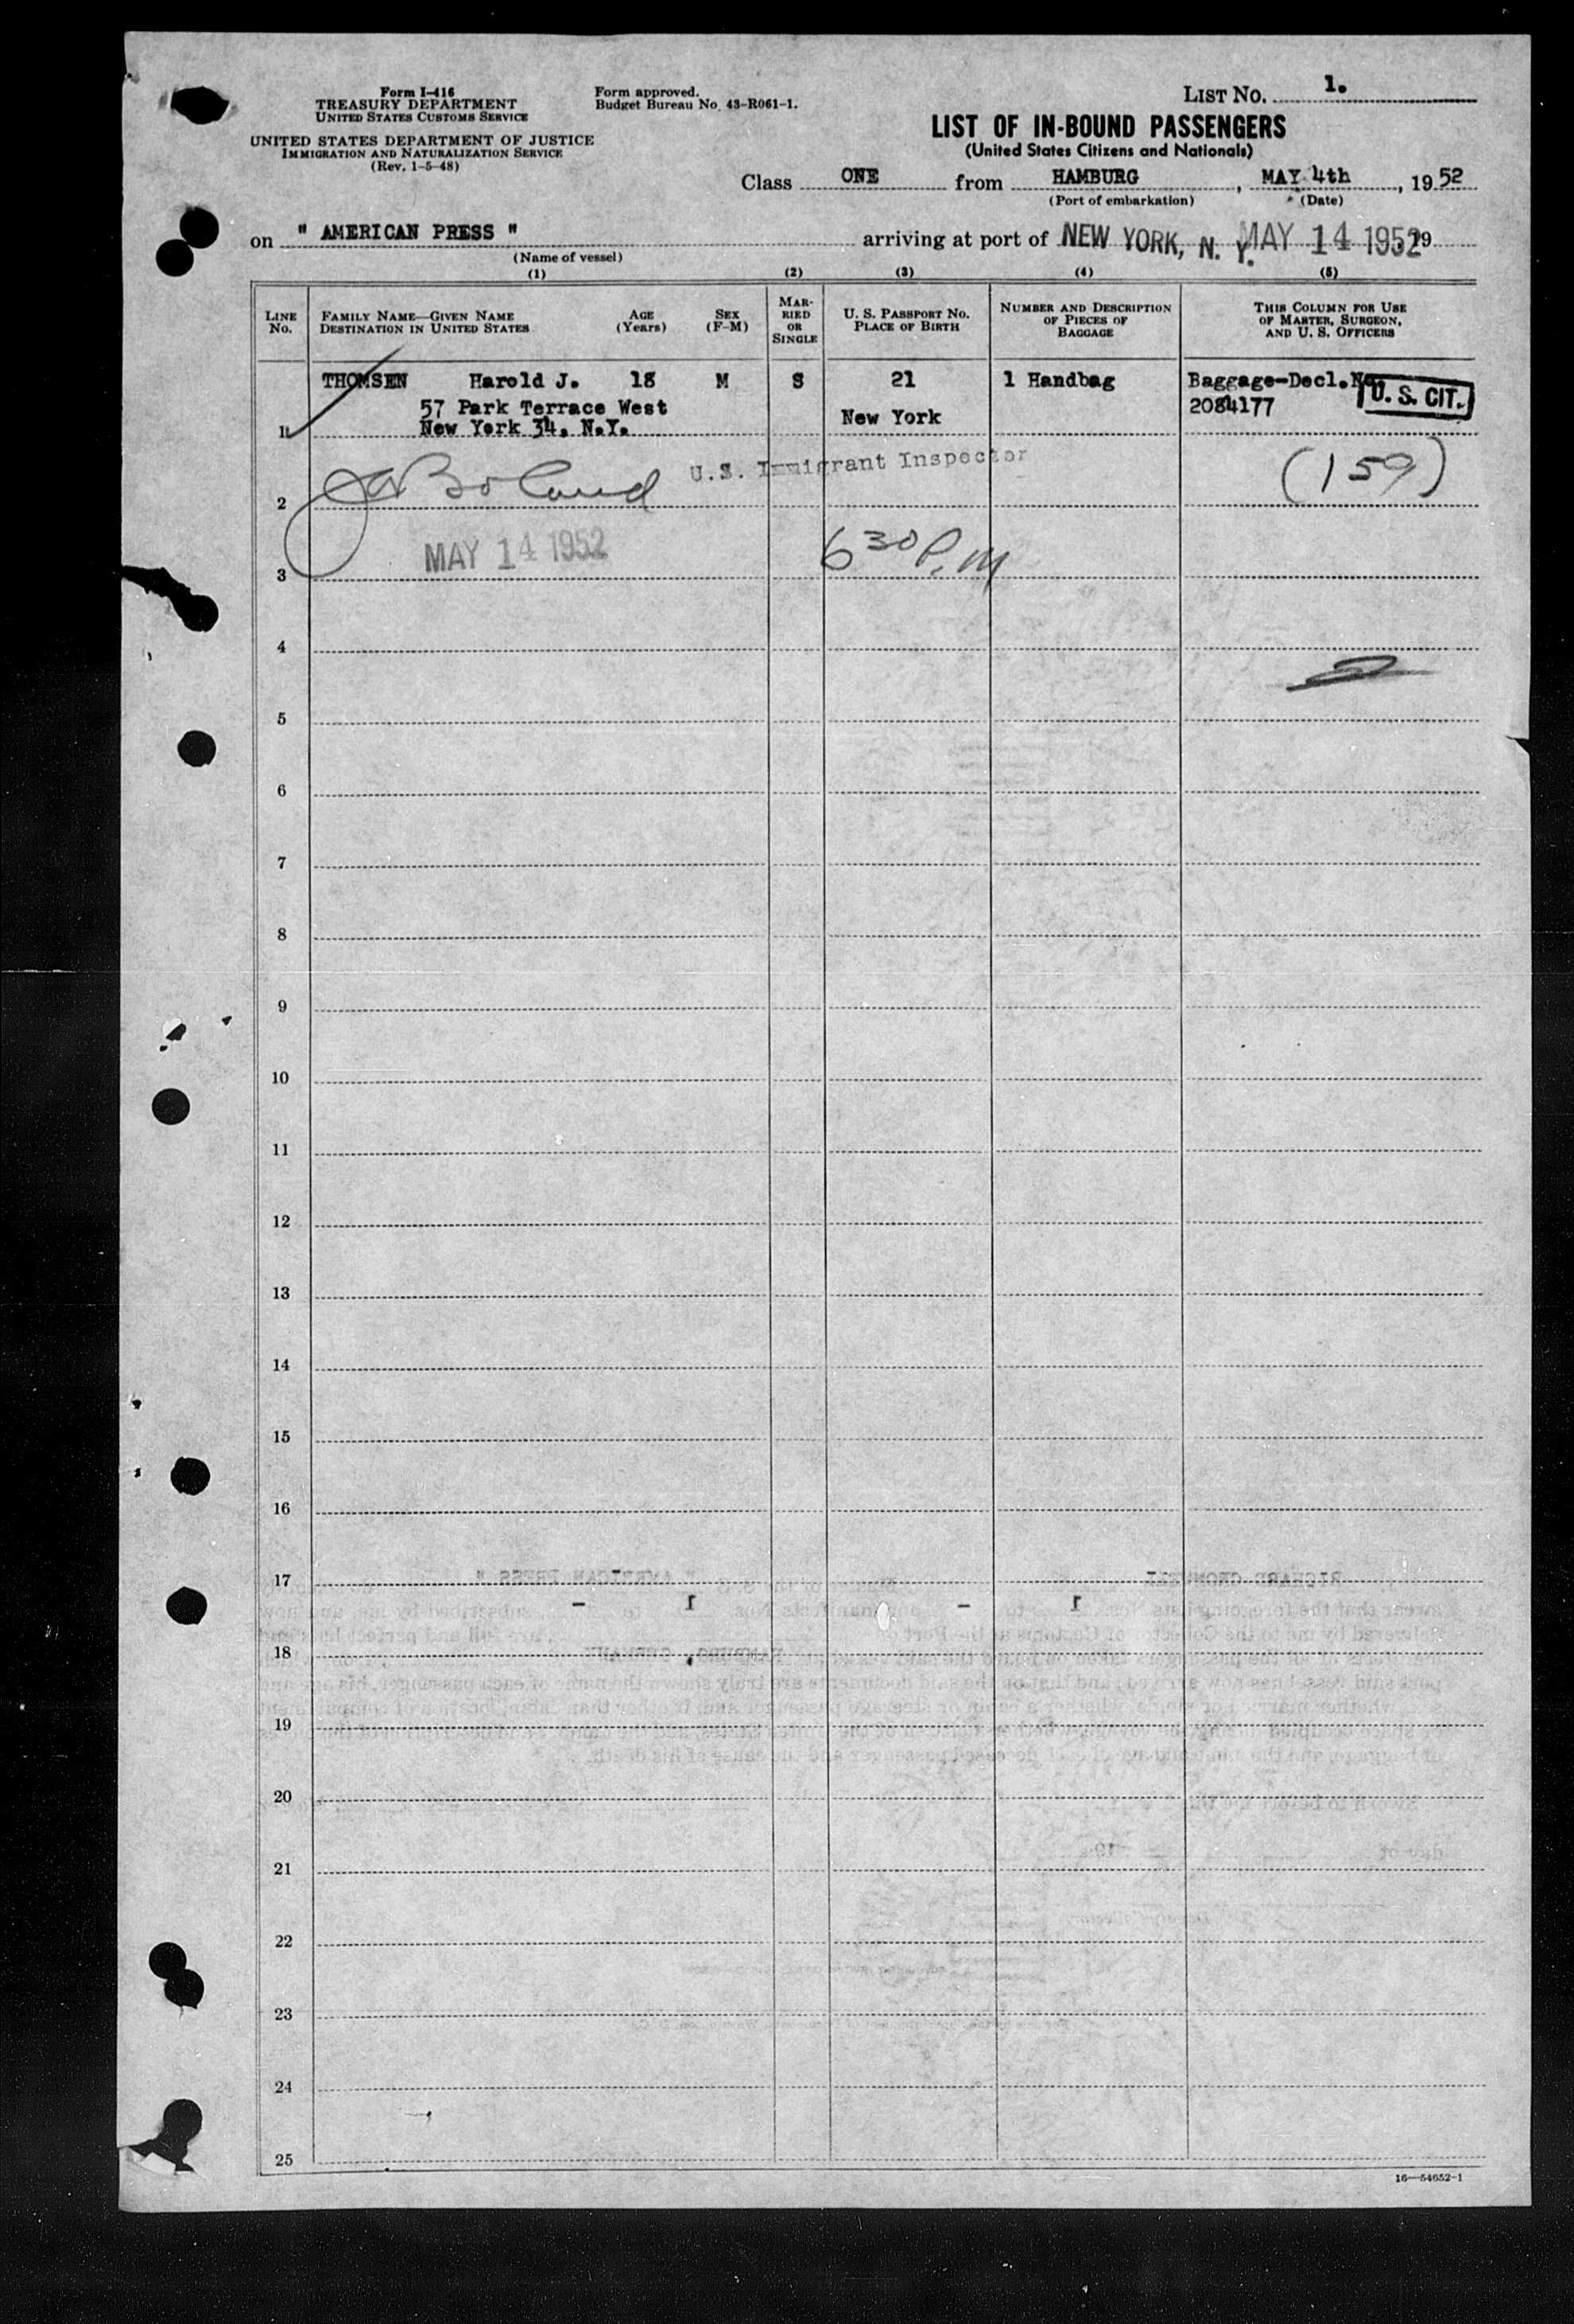 Form I-416
TREASURY DEPARTMENT
UNITED STATES CUSTOMS SERVICE
UNITED STATES DEPARTMENT OF JUSTICE
IMMIGRATION AND NATURALIZATION SERVICE
(Rev. 1-5-48)
Form approved.
Budget Bureau No. 43-R061-1.
LIST NO. 1.
LIST OF IN-BOUND PASSENGERS
(United States Citizens and Nationals)
Class ONE from HAMBURG, MAY 4th, 1952
(Port of embarkation) (Date)
on " AMERICAN PRESS " arriving at port of NEW YORK, N. Y. MAY 14 1952 19
(Name of vessel)
(1) (2) (3) (4) (5)
LINE No. FAMILY NAME—GIVEN NAME DESTINATION IN UNITED STATES AGE (Years) SEX (F-M) MARRIED OR SINGLE U. S. PASSPORT NO. PLACE OF BIRTH NUMBER AND DESCRIPTION OF PIECES OF BAGGAGE THIS COLUMN FOR USE OF MASTER, SURGEON, AND U. S. OFFICERS
THOMSEN Harold J. 18 M S 21 1 Handbag Baggage-Decl.No. U. S. CIT.
57 Park Terrace West New York 2084177
1 New York 34. N.Y.
Boland U.S. Immigrant Inspector (159)
2
MAY 14 1952 6 30 P.M
3
4
5
6
7
8
9
10
11
12
13
14
15
16
17
18
19
20
21
22
23
24
25
16—54652-1